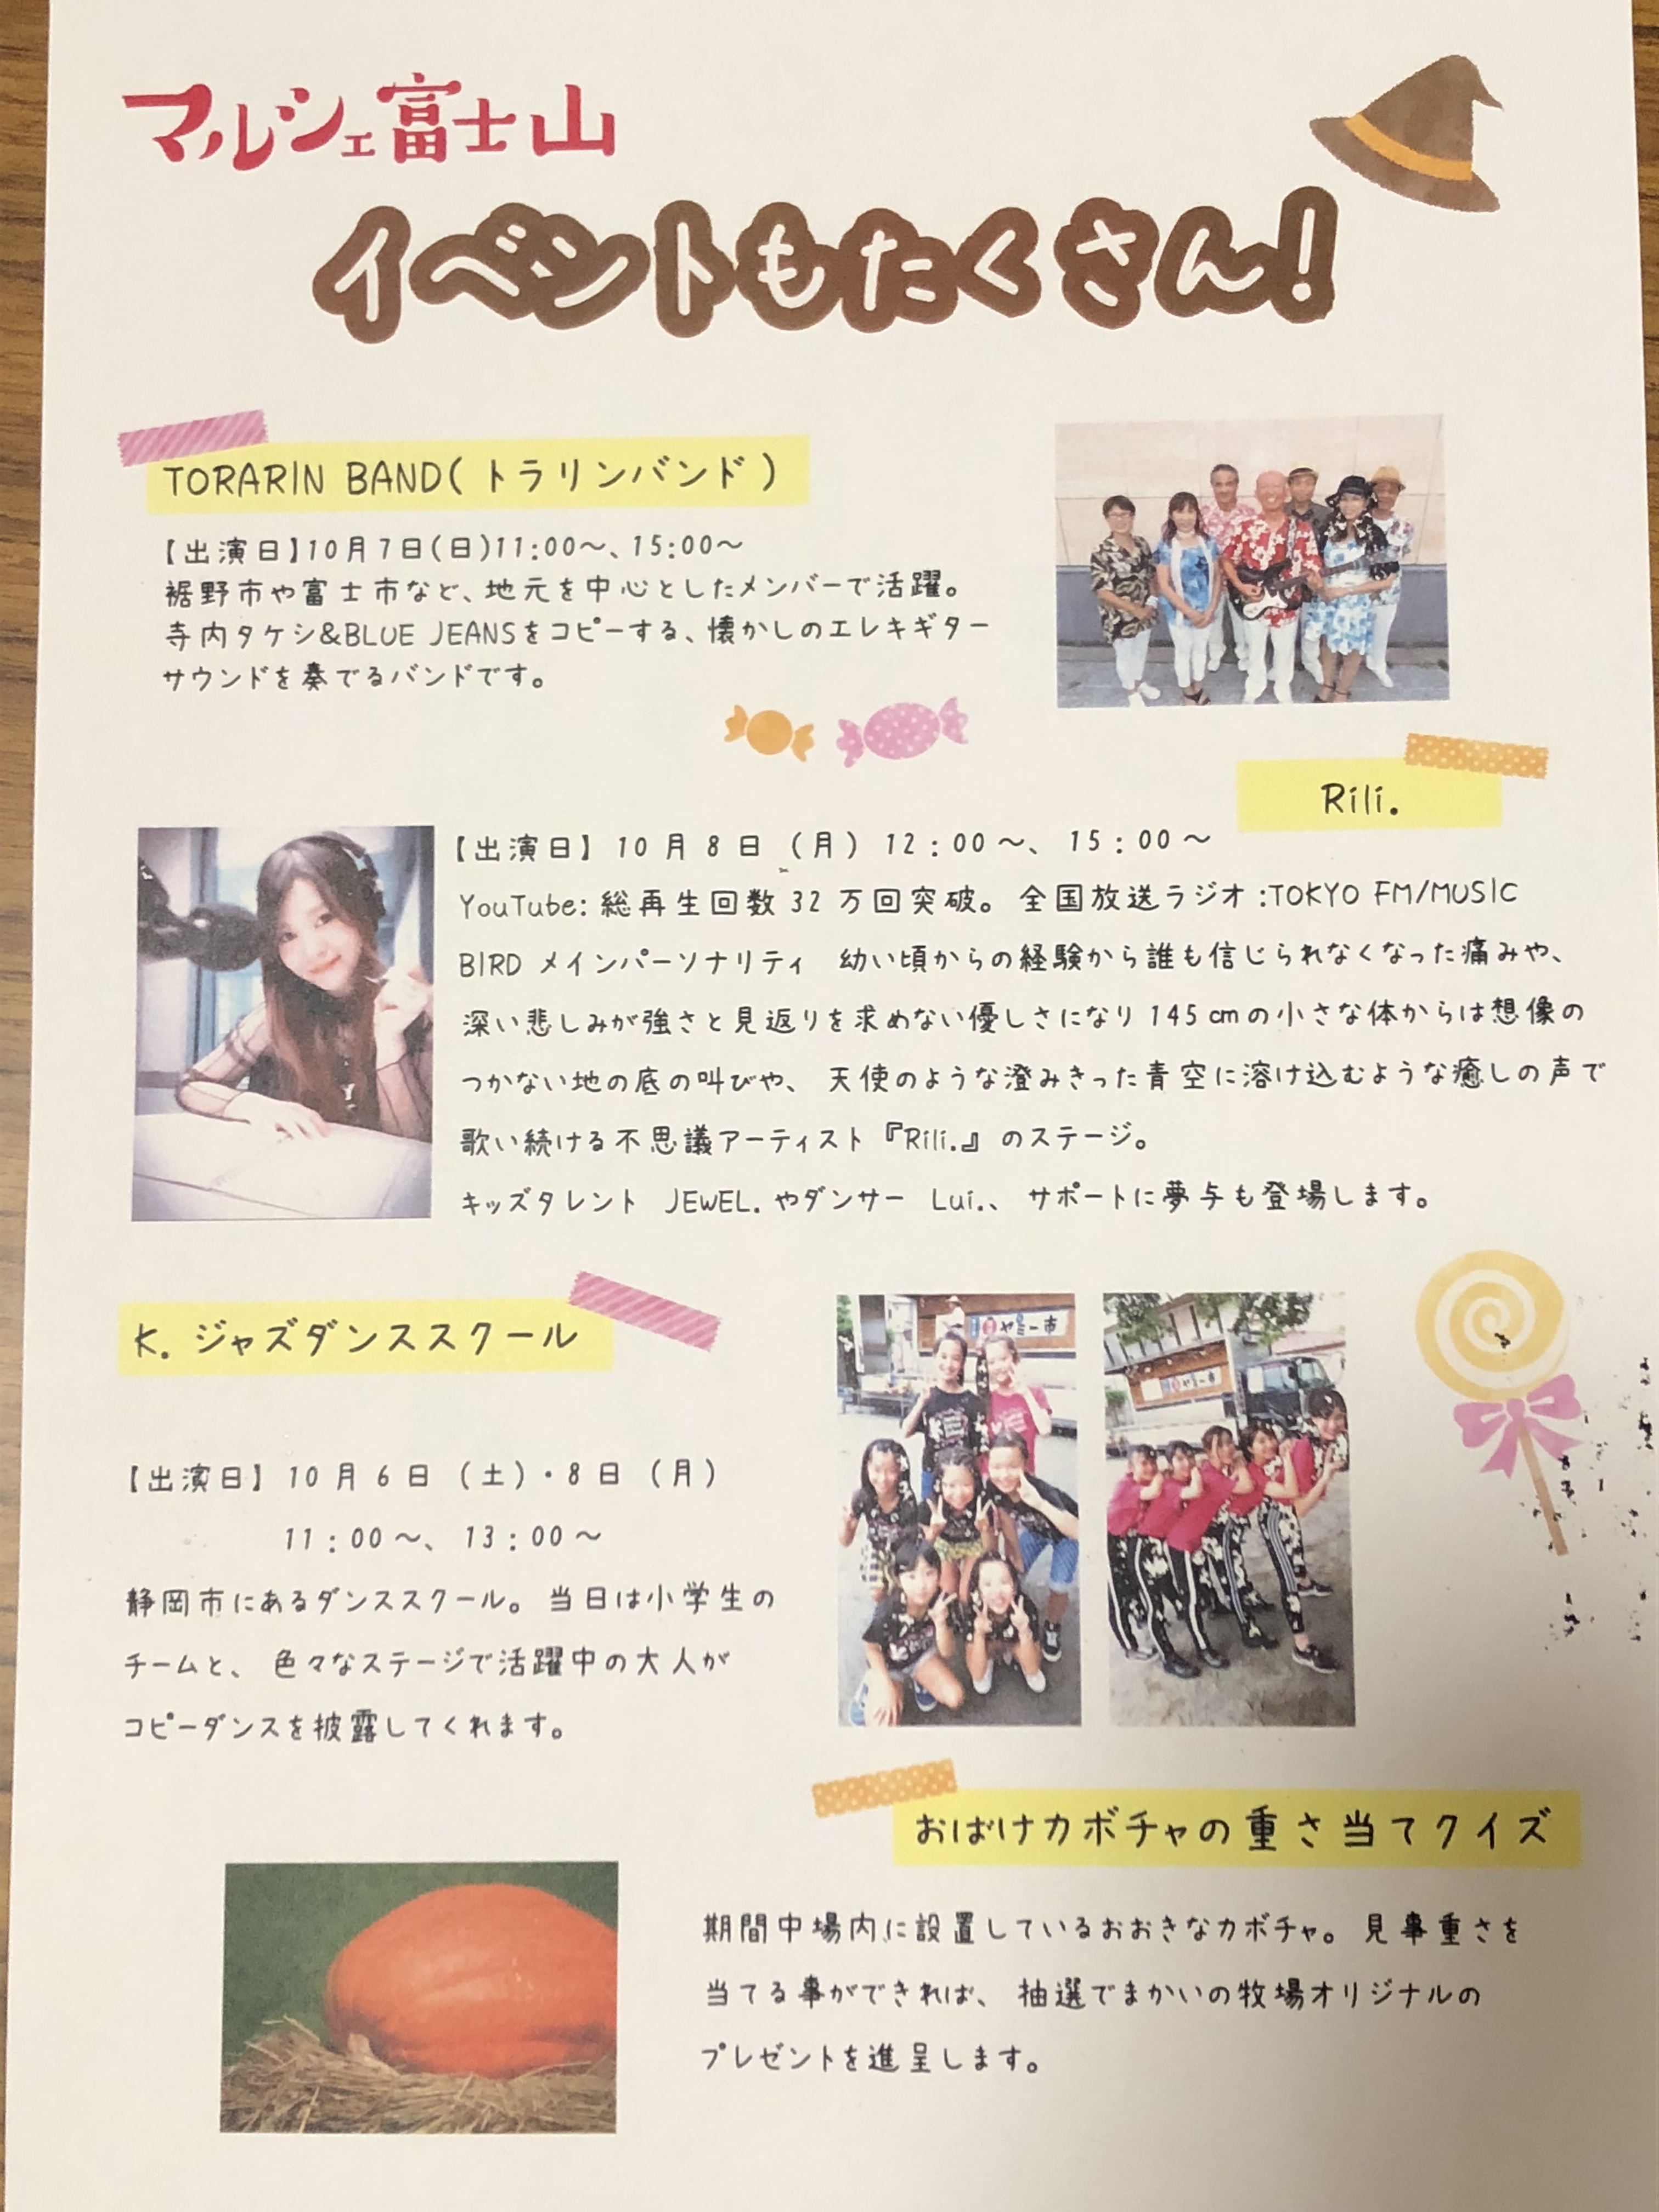 マルシェ富士山
イベントもたくさん!
TORARIN BAND(トラリンバンド)
【出演日】10月7日(日)11:00〜、15:00〜
裾野市や富士市など、地元を中心としたメンバーで活躍。
寺内タケシ&BLUE JEANSをコピーする、懐かしのエレキギター
サウンドを奏でるバンドです。
Rili.
【出演日】10月8日(月)12:00〜、15:00〜
YouTube:総再生回数32万回突破。全国放送ラジオ:TOKYO FM/MUSIC
BIRD メインパーソナリティ 幼い頃からの経験から誰も信じられなくなった痛みや、
深い悲しみが強さと見返りを求めない優しさになり145cmの小さな体からは想像の
つかない地の底の叫びや、天使のような澄みきった青空に溶け込むような癒しの声で
歌い続ける不思議アーティスト『Rili.』のステージ。
キッズタレント JEWEL.やダンサー Lui.、サポートに夢与も登場します。
K.ジャズダンススクール
【出演日】10月6日(土)・8日(月)
11:00〜、13:00〜
静岡市にあるダンススクール。当日は小学生の
チームと、色々なステージで活躍中の大人が
コピーダンスを披露してくれます。
おばけカボチャの重さ当てクイズ
期間中場内に設置しているおおきなカボチャ。見事重さを
当てる事ができれば、抽選でまかいの牧場オリジナルの
プレゼントを進呈します。